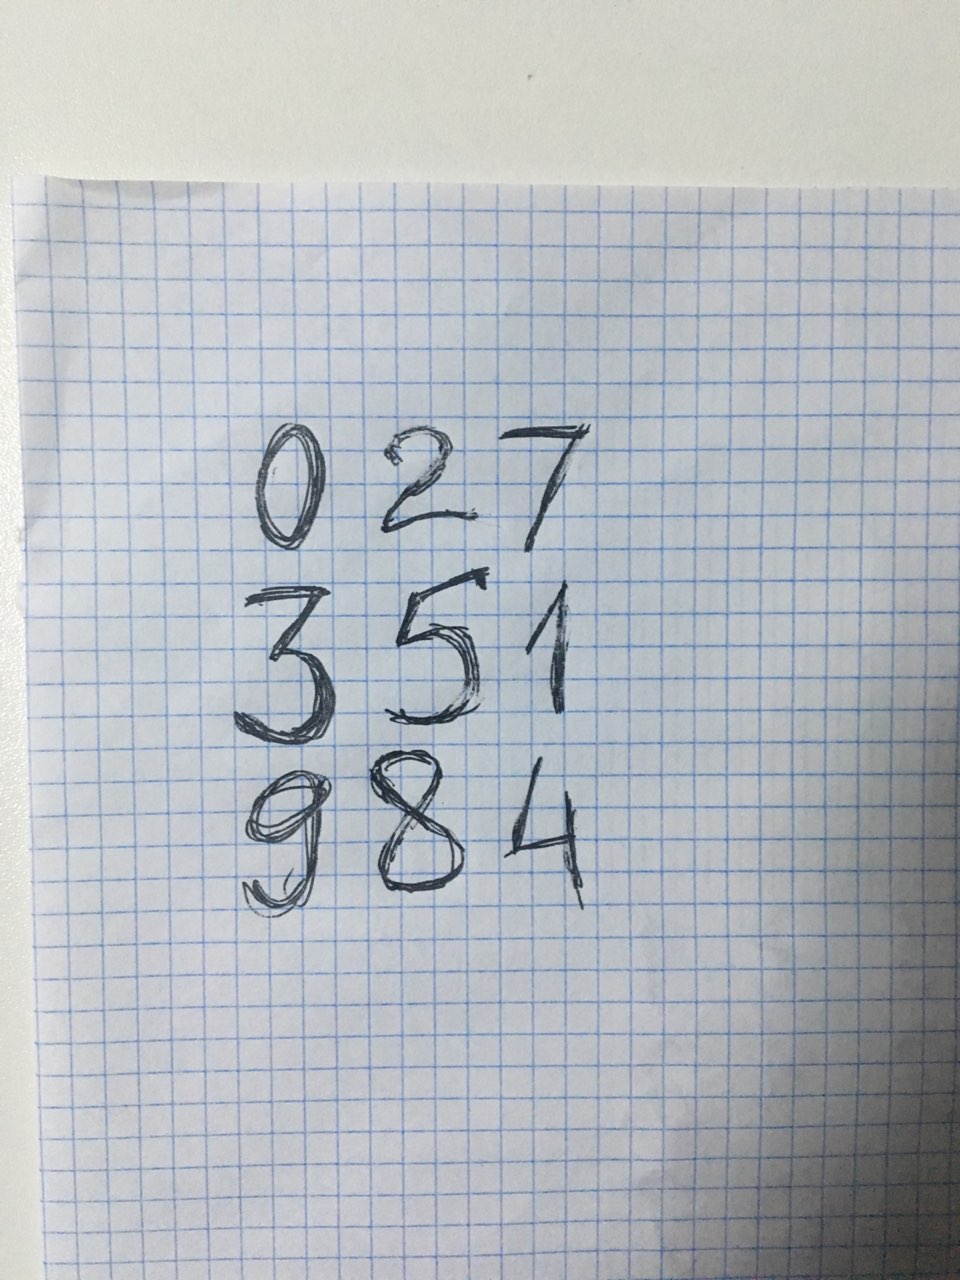 0 2 7
3 5 1
9 8 4